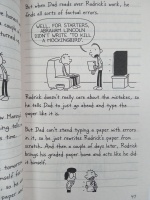 But when Dad reads over Rodrick's work, he
finds all sorts of factual errors.
WELL, FOR STARTERS,
ABRAHAM LINCOLN
DIDN'T WRITE "TO KILL
A MOCKINGBIRD".
Rodrick doesn't really care about the mistakes, so
he tells Dad to just go ahead and type the
paper like it is.
But Dad can't stand typing a paper with errors
in it, so he just rewrites Rodrick's paper from
scratch. And then a couple of days later, Rodrick
brings his graded paper home and acts like he did
it himself.